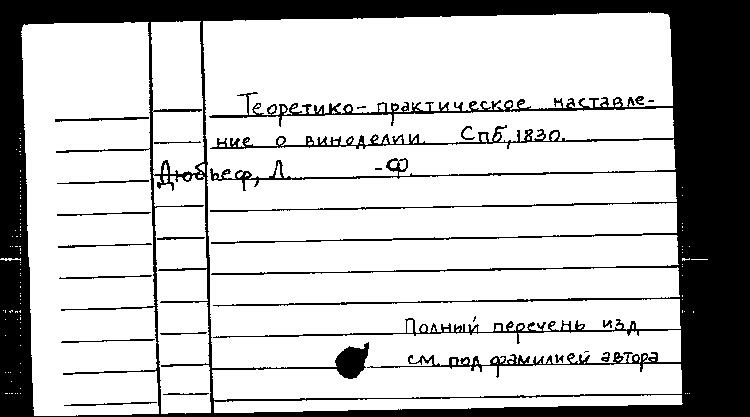 Теоретико-практическое наставле-
ние о виноделии. Спб, 1830.
Дюбьеф, Л. -Ф.
Полный перечень изд.
см. под фамилией автора